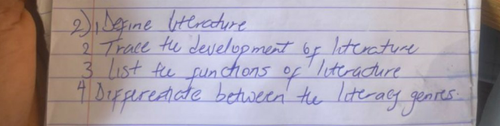 2) 1 Define literature
2 Trace the development of literature
3 List the functions of literature
4 Differentiate between the literacy genres.